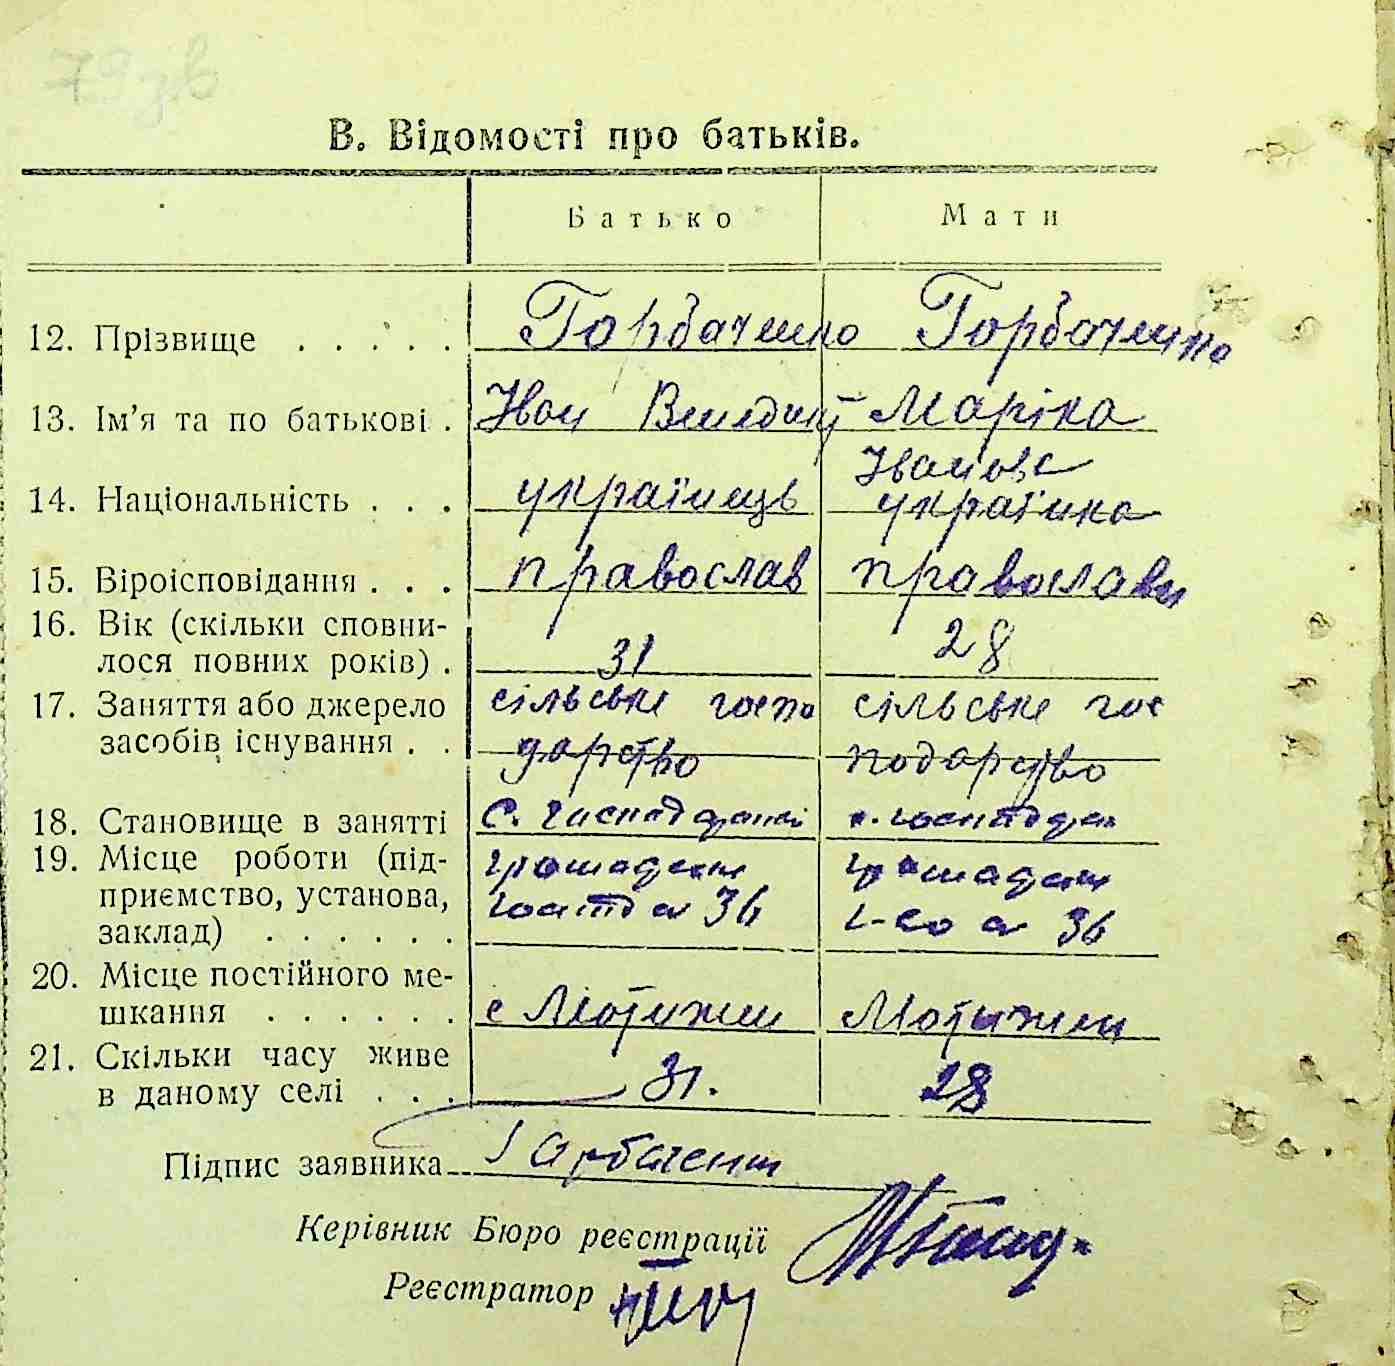 79зв
В. Відомості про батьків.
Батько Мати
12. Прізвище . . . . . Горбаченко Горбаченко
13. Ім’я та по батькові . Іван Венедикт Маріка
Іванова
14. Національність . . . українець українка
15. Віроісповідання . . . православ православн
16. Вік (скільки сповни-
лося повних років) . 31 28
17. Заняття або джерело сільське госпо сільське гос
засобів існування . . дарство подарство
18. Становище в занятті с.
19. Місце роботи (під- громадськ громадськ
приємство, установа, 36 г-во 36
заклад) . . . . . .
20. Місце постійного ме-
шкання . . . . . . с Мотижин Мотыжин
21. Скільки часу живе
в даному селі . . . 31. 28
Підпис заявника Горбаченко
Керівник Бюро реєстрації
Реєстратор